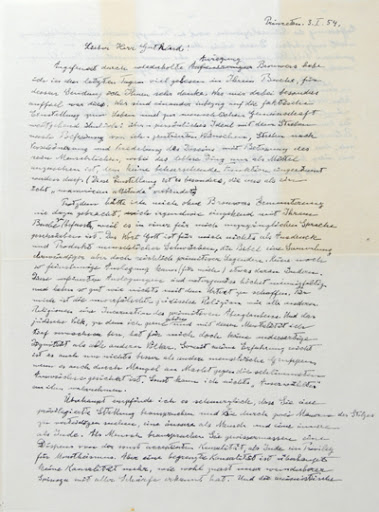 Princeton. 3. I. 54.
Lieber Herr Gutkind!
Angefeuert durch wiederholte Anregung Brouwers habe
ich in den letzten Tagen viel gelesen in Ihrem Buche, für
dessen Sendung ich Ihnen sehr danke. Was mir dabei besonders
auffiel war dies. Wir sind einander inbezug auf die faktische
Einstellung zum Leben und zur menschlichen Gemeinschaft
weitgehend ähnlich: über-persönliches Ideal mit dem Streben
nach Befreiung von ich-zentrierten Wünschen, Streben nach
Verschönerung und Veredelung des Daseins mit Betonung des
rein Menschlichen, wobei das leblose Ding nur als Mittel
anzusehen ist, dem keine beherrschende Funktion eingeräumt
werden darf. (Diese Einstellung ist es besonders, die uns als ein
echt "unamerican attitude" verbindet.)
Trotzdem hätte ich mich ohne Brouwers Ermunterung
nie dazu gebracht, mich irgendwie eingehend mit Ihrem
Buche zu befassen, weil es in einer für mich unzugänglichen Sprache
geschrieben ist. Das Wort Gott ist für mich nichts als Ausdruck
und Produkt menschlicher Schwächen, die Bibel eine Sammlung
ehrwürdiger aber doch reichlich primitiver Legenden. Keine noch
so feinsinnige Auslegung kann (für mich) etwas daran ändern.
Diese verfeinerten Auslegungen sind naturgemäss höchst mannigfaltig
und haben so gut wie nichts mit dem Urtext zu schaffen. Für
mich ist die unverfälschte jüdische Religion wie alle anderen
Religionen eine Incarnation des primitiven Aberglaubens. Und das
jüdische Volk, zu dem ich gerne gehöre und mit dessen Mentalität ich
tief verwachsen bin, hat für mich doch keine andersartige
Dignität als alle anderen Völker. Soweit meine Erfahrung reicht
ist es auch um nichts besser als andere menschliche Gruppen
wenn es auch durch Mangel an Macht gegen die schlimmsten
Auswüchse gesichert ist. Sonst kann ich nichts "Auserwähltes"
an ihm wahrnehmen.
Überhaupt empfinde ich es schmerzlich, dass Sie eine
privilegierte Stellung beanspruchen und sie durch zwei Mauern des Stolzes
zu verteidigen suchen, eine äussere als Mensch und eine innere
als Jude. Als Mensch beanspruchen Sie gewissermassen einen
Dispens von der sonst acceptierten Kausalität, als Jude ein Privileg
für Monotheismus. Aber eine begrenzte Kausalität ist überhaupt
keine Kausalität mehr, wie wohl zuerst unser wunderbarer
Spinoza mit aller Schärfe erkannt hat. Und die animistische